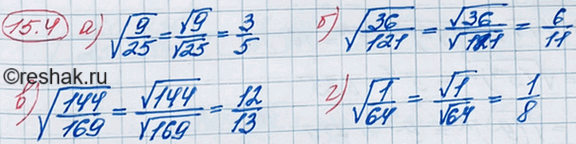 15.4 а) √(9/25) = √9/√25 = 3/5 б) √(36/121) = √36/√121 = 6/11
©reshak.ru
в) √(144/169) = √144/√169 = 12/13 г) √(1/64) = √1/√64 = 1/8